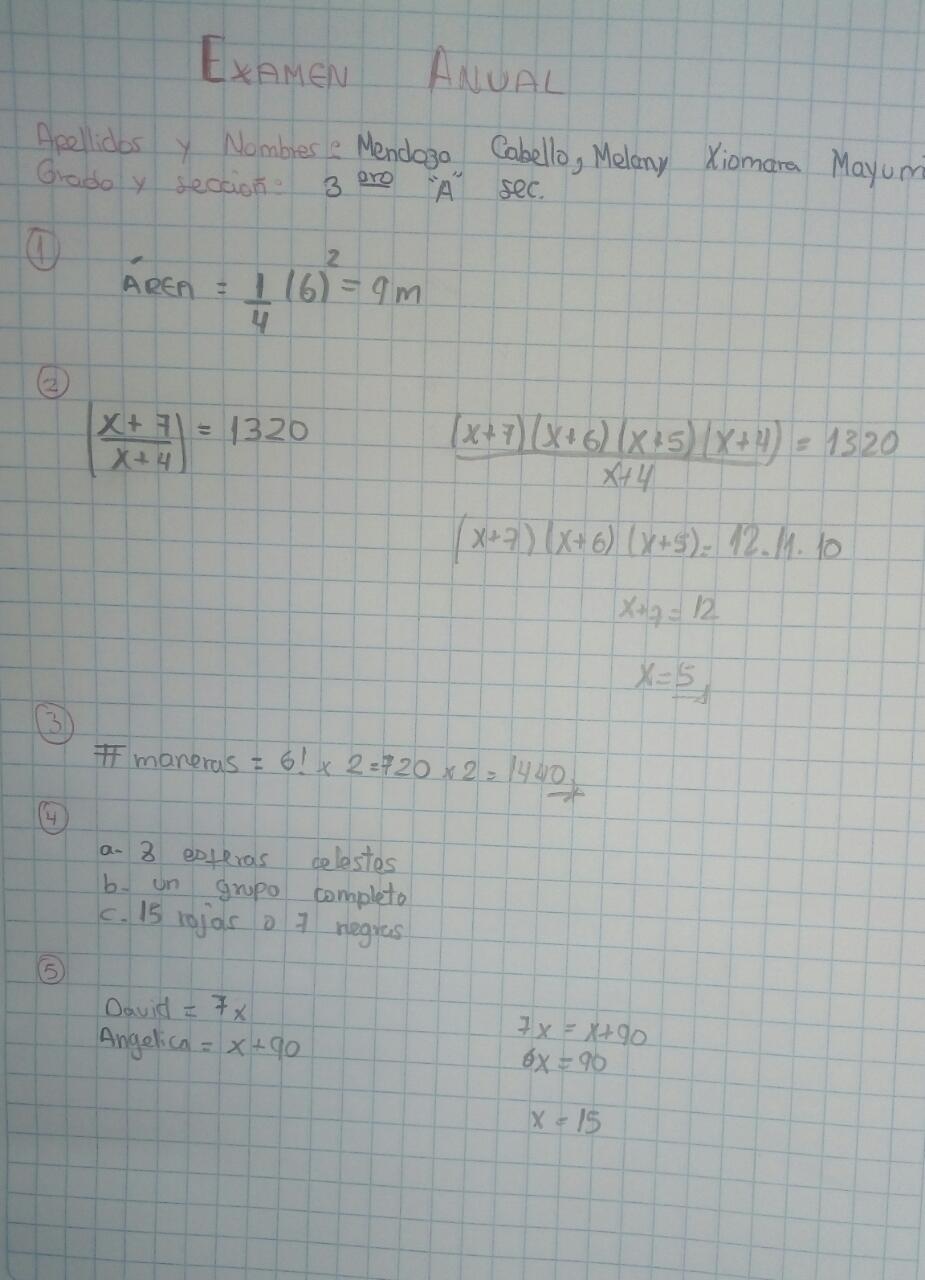 EXAMEN ANUAL
Apellidos y Nombres: Mendoza Cabello, Melany Xiomara Mayumi
Grado y sección: 3 ero "A" sec.
①
ÁREA = 1/4 (6)² = 9m
②
|x+7/x+4| = 1320
(x+7)(x+6)(x+5)(x+4)/x+4 = 1320
(x+7)(x+6)(x+5)= 12.11.10
x+7=12
x=5
③
# maneras = 6! x 2=720 x 2= 1440
④
a- 3 esferas celestes
b- un grupo completo
c. 15 rojas o 7 negras
⑤
David = 7x
Angelica = x+90
7x = x+90
6x = 90
x = 15